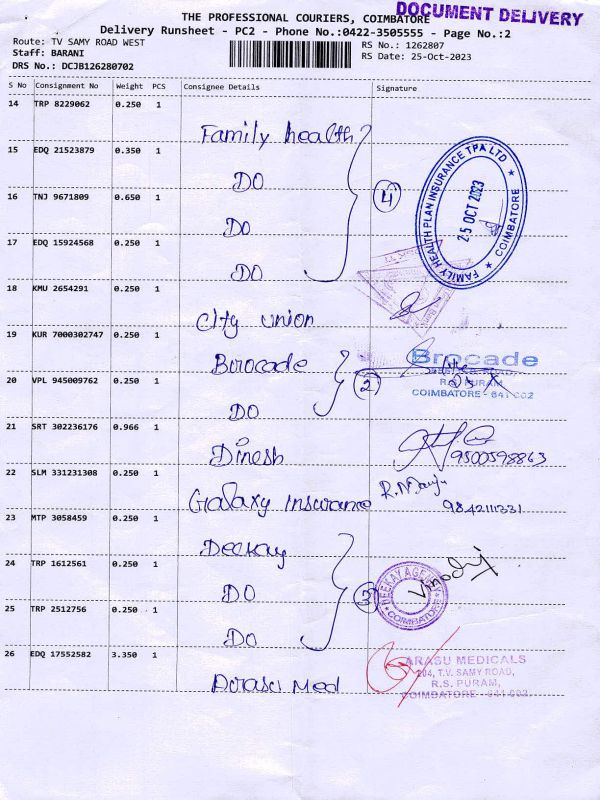 DOCUMENT DELIVERY
THE PROFESSIONAL COURIERS, COIMBATORE
Delivery Runsheet - PC2 - Phone No.:0422-3505555 - Page No.:2
Route: TV SAMY ROAD WEST
RS No.: 1262807
Staff: BARANI
RS Date: 25-Oct-2023
DRS No.: DCJB126280702
S No Consignment No Weight PCS Consignee Details Signature
14 TRP 8229062 0.250 1
Family health
15 EDQ 21523879 0.350 1
DO
16 TNJ 9671809 0.650 1
DO
17 EDQ 15924568 0.250 1
DO
4
FAMILY HEALTH PLAN INSURANCE TPA LTD
25 OCT 2023
COIMBATORE
18 KMU 2654291 0.250 1
City union
19 KUR 7000302747 0.250 1
Brocade
20 VPL 945009762 0.250 1
DO
2
Brocade
R.S. PURAM,
COIMBATORE - 641 002
21 SRT 302236176 0.966 1
Dinesh
9500598863
22 SLM 331231308 0.250 1
Galaxy Insurance
9842111331
23 MTP 3058459 0.250 1
Deekay
24 TRP 1612561 0.250 1
DO
25 TRP 2512756 0.250 1
DO
3
DEEKAY AGENCY
COIMBATORE
26 EDQ 17552582 3.350 1
Arasu Med
ARASU MEDICALS
204, T.V. SAMY ROAD,
R.S. PURAM,
COIMBATORE - 641 002